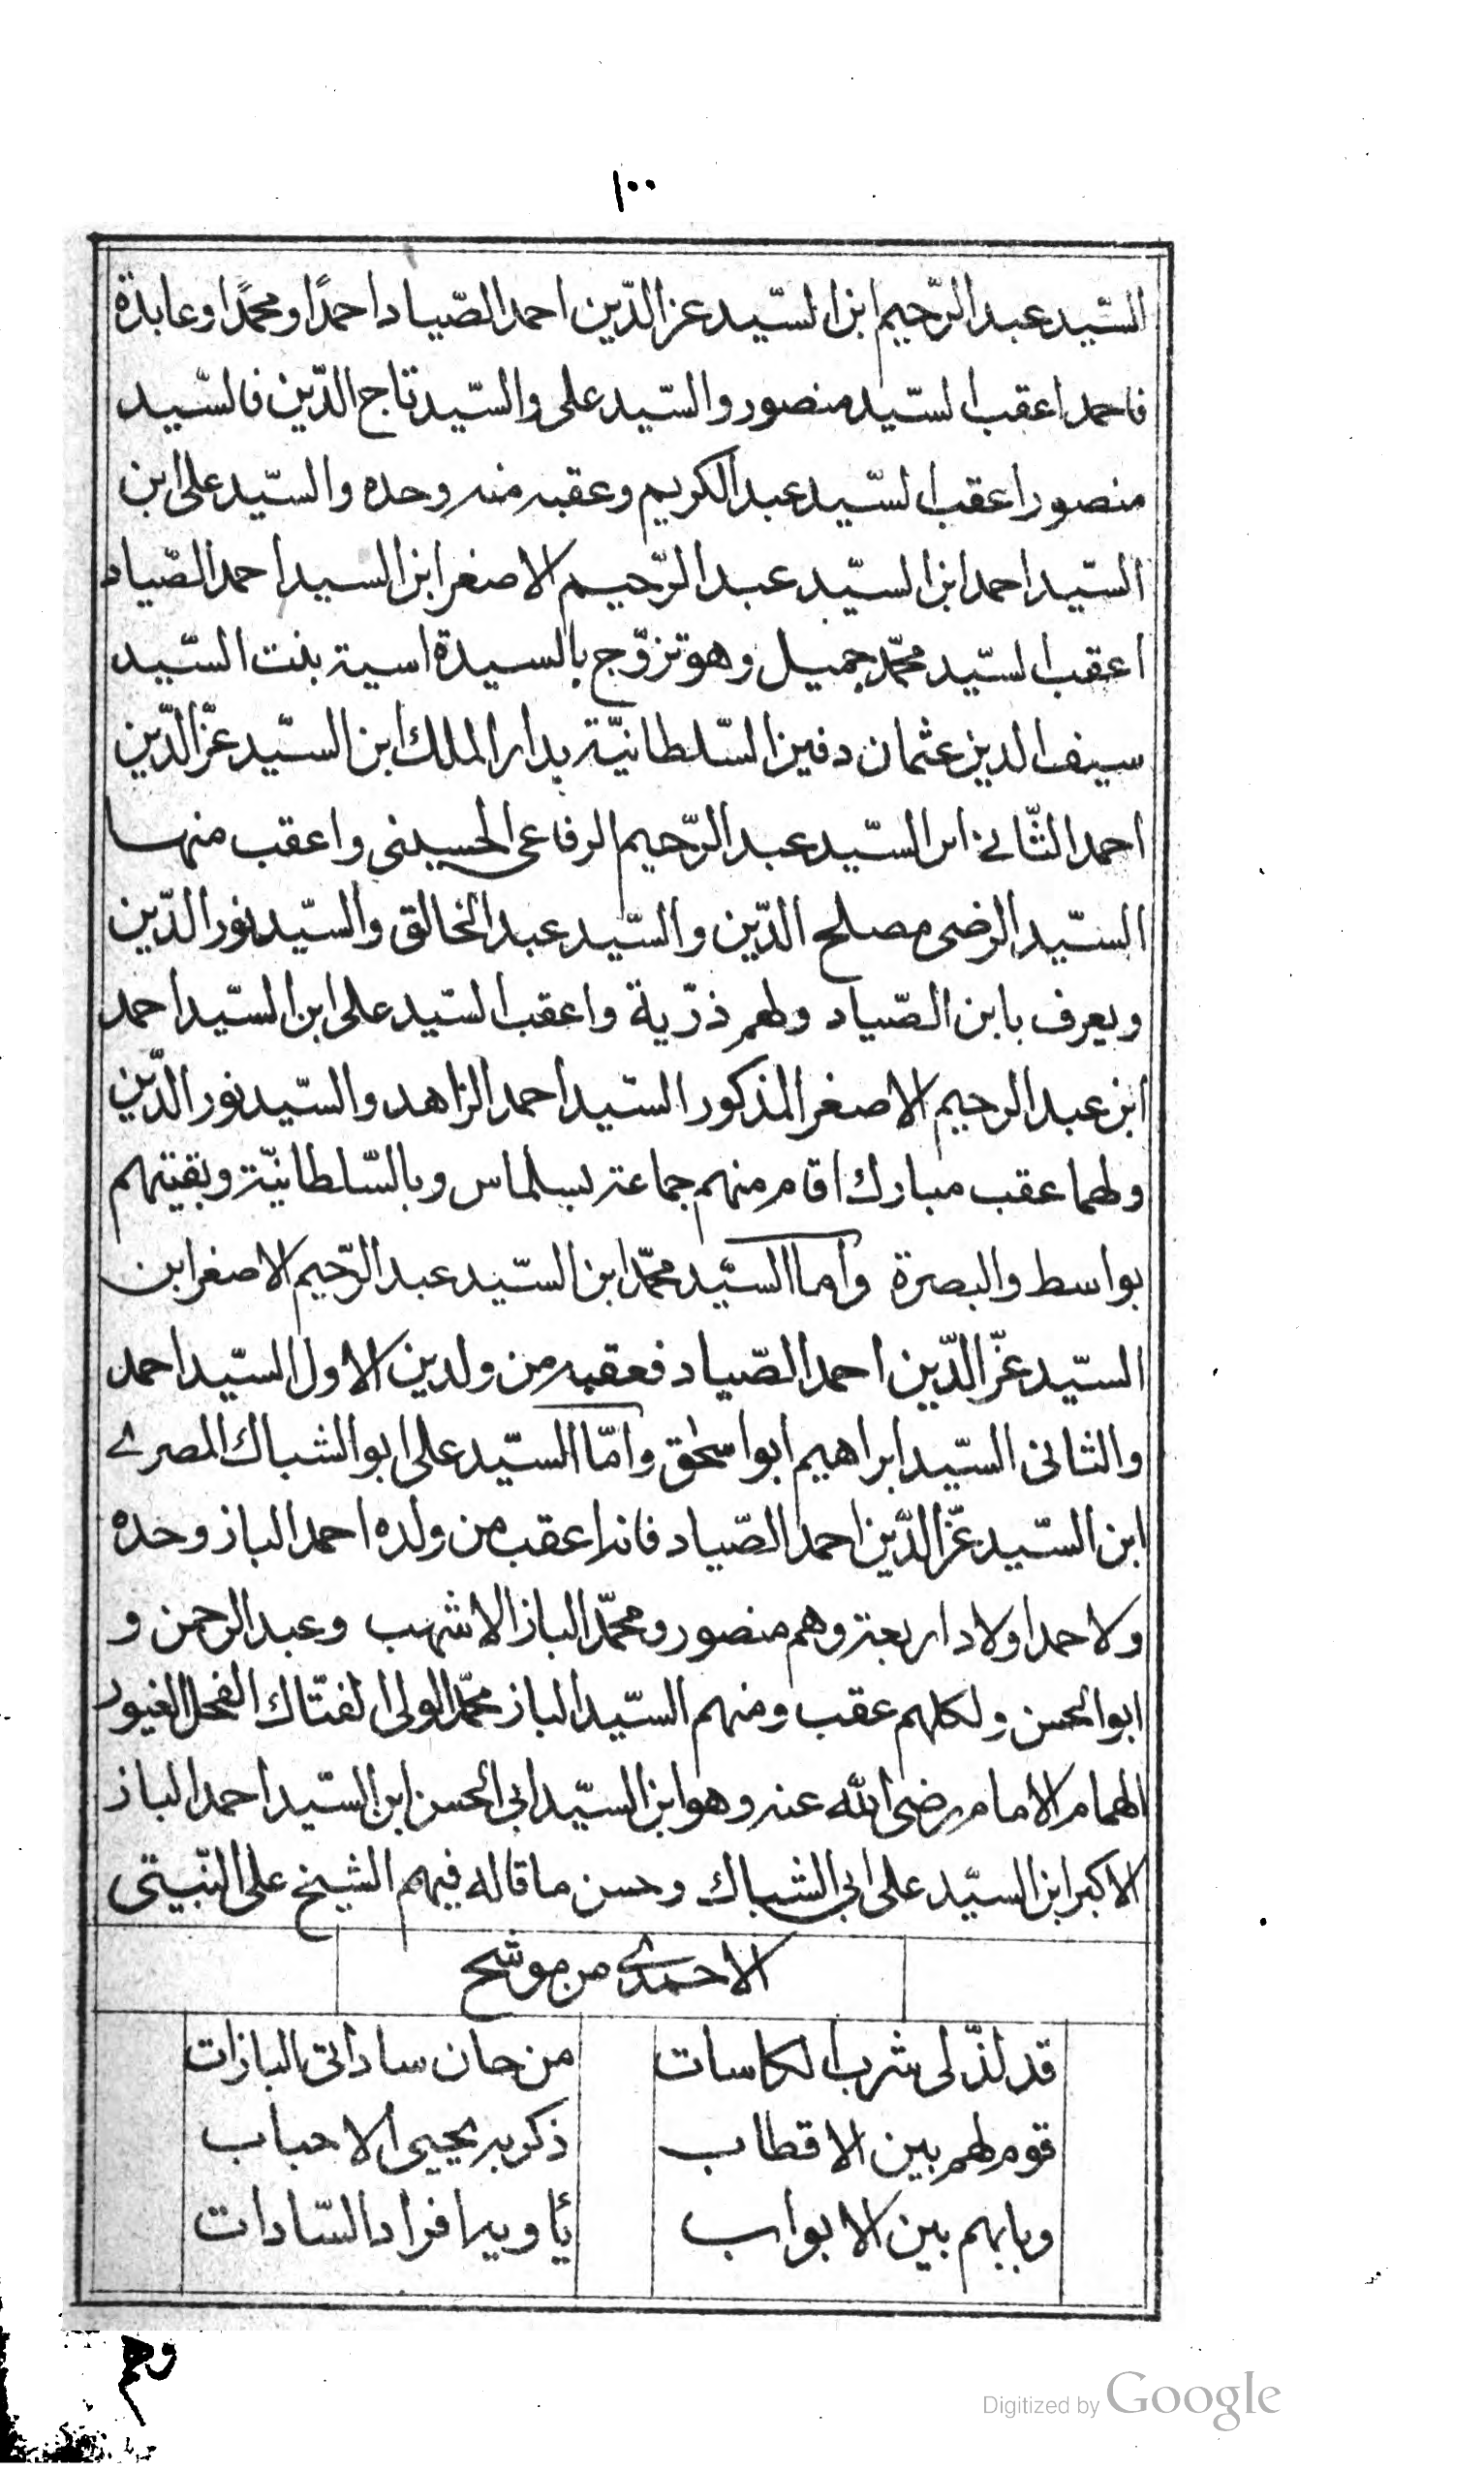 ١٠٠
السّيد عبد الرّحيم ابن السّيد عز الدّين احمد الصّياد احمدًا ومحمدًا وعابدة
فاحمد اعقب السّيد منصور والسّيد على والسّيد تاج الدّين فالسّيد
منصور اعقب السّيد عبد الكريم وعقبه منه وحده والسّيد على ابن
السّيد احمد ابن السّيد عبد الرّحيم الاصغر ابن السيد احمد الصّياد
اعقب السّيد محمّد جميل وهو تزوّج بالسيدة اسية بنت السّيد
سيف الدين عثمان دفين السّلطانيّة بدار الملك ابن السّيد عزّ الدّين
احمد الثّانى ابن السّيد عبد الرّحيم الرفاعى الحسينى واعقب منها
السّيد الرضى مصلح الدّين والسّيد عبد الخالق والسّيد نور الدّين
ويعرف بابن الصّياد ولهم ذرّية واعقب السّيد على ابن السّيد احمد
ابن عبد الرحيم الاصغر المذكور السّيد احمد الزاهد والسّيد نور الدّين
ولهما عقب مبارك اقام منهم جماعة بسلماس وبالسّلطانيّة وبقيتهم
بواسط والبصرة واما السّيد محمّد ابن السّيد عبد الرّحيم الاصغر ابن
السّيد عزّ الدّين احمد الصّياد فعقبه من ولدين الاول السّيد احمد
والثانى السّيد ابراهيم ابو اسحٰق وامّا السّيد على ابو الشباك المصرى
ابن السّيد عزّ الدّين احمد الصّياد فانه اعقب من ولده احمد الباز وحده
ولاحمد اولاد اربعة وهم منصور ومحمّد الباز الاشهب وعبد الرحمن و
ابو الحسن ولكلهم عقب ومنهم السّيد الباز محمّد الولى الفتّاك الفحل الغيور
الهمام الامام رضى الله عنه وهو ابن السّيد ابى الحسن ابن السّيد احمد الباز
الاكبر ابن السيّد على ابى الشباك وحسن ما قاله فيهم الشيخ على النّبيتى
الاحمدى من موشح
قد لذّ لى شرب الكاسات من حان ساداتى البازات
قوم لهم بين الاقطاب ذكر به يحيى الاحباب
وبابهم بين الابواب يأويه افراد السّادات
وهم
Digitized by Google